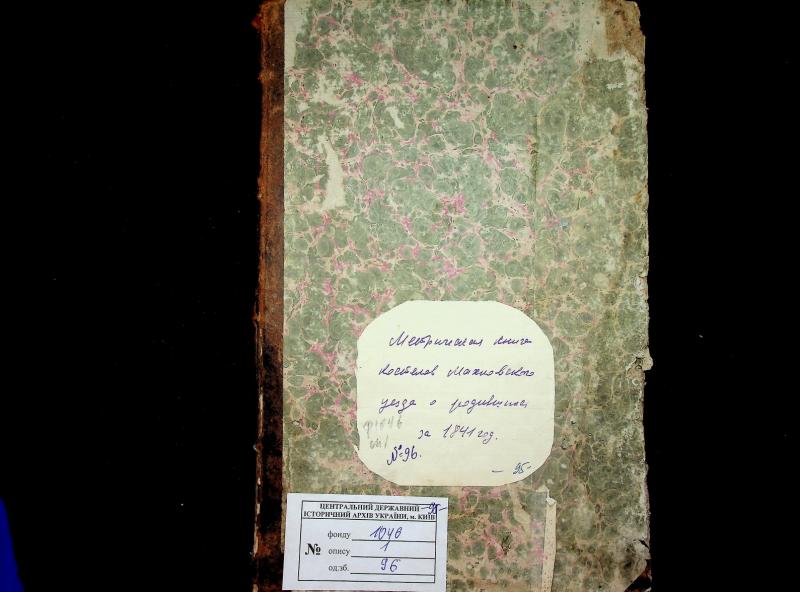 Метрическая книга
костелов Махновского
уезда о родившихся
за 1841 год.
ф1046
оп1
№96.
– 95-
ЦЕНТРАЛЬНИЙ ДЕРЖАВНИЙ -95-
ІСТОРИЧНИЙ АРХІВ УКРАЇНИ, м. КИЇВ
фонду 1046
№ опису 1
од.зб. 96